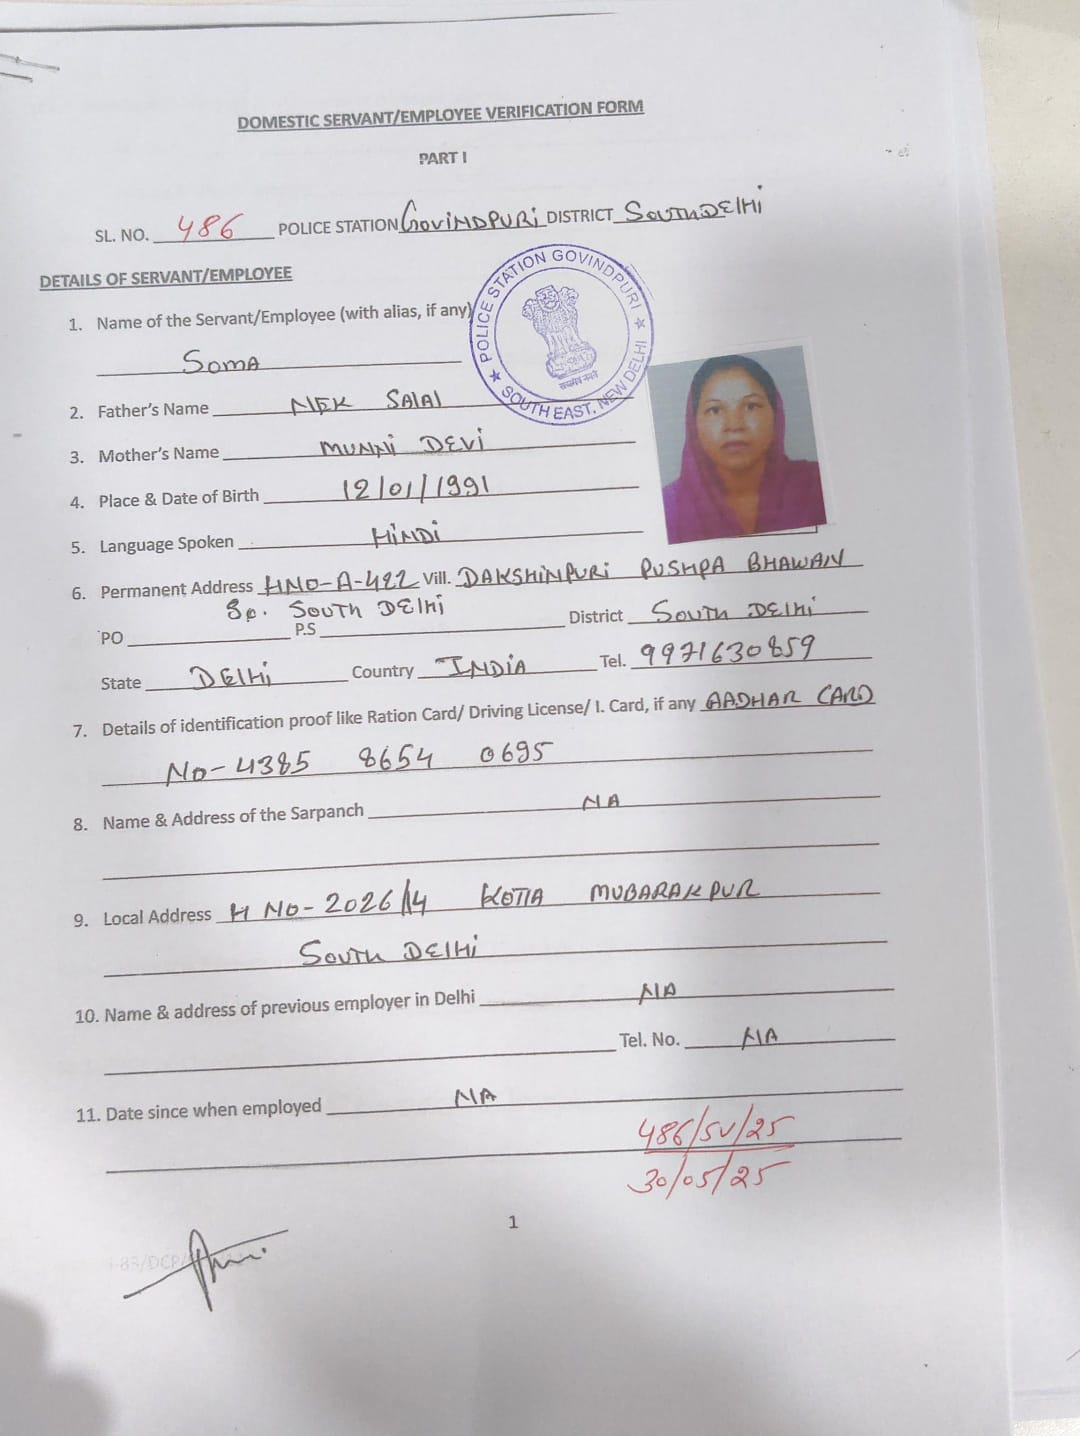 DOMESTIC SERVANT/EMPLOYEE VERIFICATION FORM
PART I
SL. NO. 486 POLICE STATION GOVINDPURI DISTRICT SOUTH DELHI
DETAILS OF SERVANT/EMPLOYEE
POLICE STATION GOVINDPURI ★ SOUTH EAST, NEW DELHI ★
सत्यमेव जयते
1. Name of the Servant/Employee (with alias, if any)
SOMA
2. Father's Name NEK SALAL
3. Mother's Name MUNNI DEVI
4. Place & Date of Birth 12/01/1991
5. Language Spoken HINDI
6. Permanent Address HNO-A-422 Vill. DAKSHINPURI PUSHPA BHAWAN
SOUTH DELHI
PO P.S District SOUTH DELHI
State DELHI Country INDIA Tel. 9971630859
7. Details of identification proof like Ration Card/ Driving License/ I. Card, if any AADHAR CARD
NO-4385 8654 0695
8. Name & Address of the Sarpanch NA
9. Local Address H NO-2026/14 KOTLA MUBARAKPUR
SOUTH DELHI
10. Name & address of previous employer in Delhi NA
Tel. No. NA
11. Date since when employed NA
486/SV/25
30/05/25
1